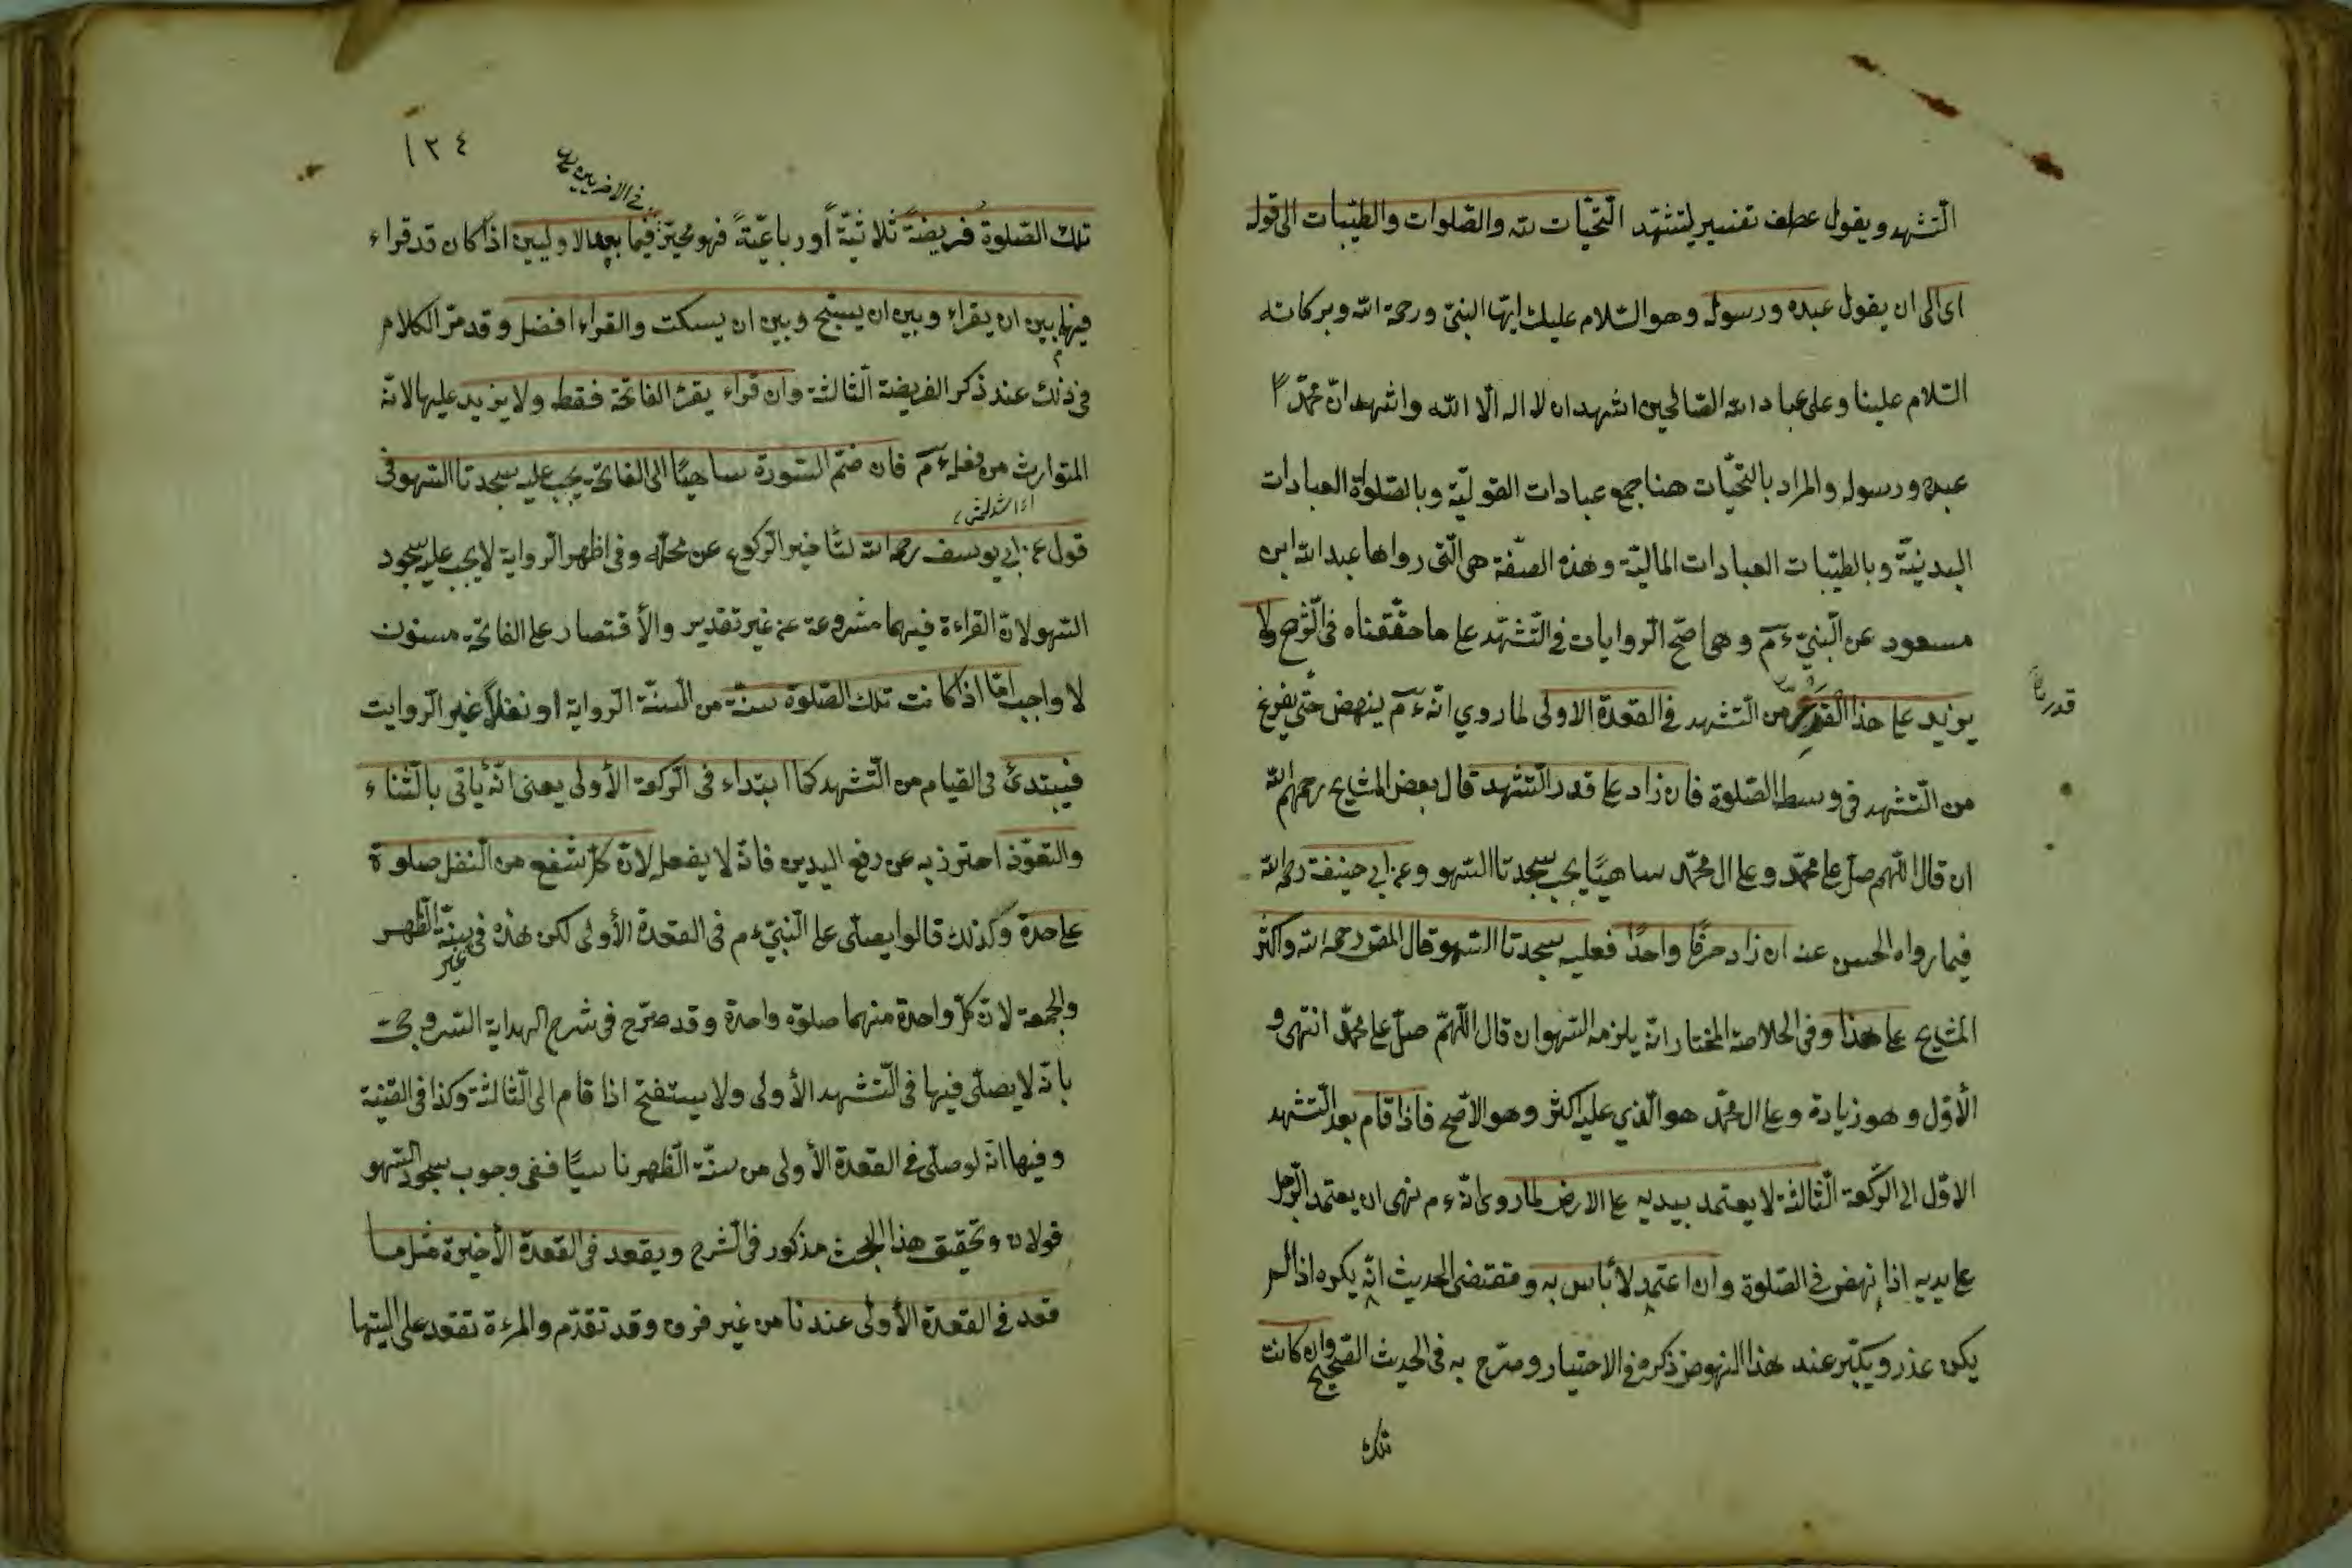 التشهد ويقول عطف تفسير لتشهّد التحيّات لله والصّلوات والطيّبات الى قوله
اى الى ان يقول عبده ورسوله وهو السّلام عليك ايّها النبيّ ورحمة الله وبركاته
السّلام علينا وعلى عباد الله الصّالحين اشهد ان لا اله الّا الله واشهد انّ محمّدًا
عبده ورسوله والمراد بالتحيّات هنا جمع عبادات القوليّة وبالصّلوة العبادات
البدنيّة وبالطيّبات العبادات الماليّة وهذه الصّفة هى الّتى رواها عبد الله ابن
مسعود عن النّبيّ ءم وهى اصّح الرّوايات فى التّشهّد على ما حقّقناه فى الشّرح ولا
يزيد على هذا القدر من التّشهد فى القعدة الاولى لما روي انّه ءم ينهض حتّى يفرغ
قدر
من التّشهد فى وسط الصّلوة فان زاد على قدر التّشهد قال بعض المشايخ رحمهم الله
ان قال اللّهم صلّ على محمّد وعلى ال محمّد ساهيًا يجب سجدتا السّهو وعن ابي حنيفة رحمه الله
فيما رواه الحسن عنه ان زاد حرفًا واحدًا فعليه سجدتا السّهو قال المصّ رحمه الله واكثر
المشايخ على هذا وفى الخلاصة المختار انّه يلزمه السّهو ان قال اللّهمّ صلّ على محمّد انتهى و
الأوّل وهو زيادة وعلى ال محمّد هو الّذي عليه اكثر وهو الاصّح فاذا قام بعد التّشهد
الاوّل الى الرّكعة الثّالثة لا يعتمد بيديه على الارض لما روى انّه ءم نهى ان يعتمد الرّجل
على يديه اذا نهض فى الصّلوة وان اعتمد لا بأس به ومقتضى الحديث انّه يكره اذا لم
يكن عذر ويكبّر عند هذا النهوض ذكره فى الاختيار وصرّح به فى الحديث الصّحيح وان كانت
تلك
١٢٤
فى الاخريين
تلك الصّلوة فريضة ثلاثيّة أو رباعيّة فهو مخيّر فيما بعد الاوليين اذا كان قد قراء
فيهما بين ان يقراء وبين ان يسبّح وبين ان يسكت والقراءا افضل وقد مرّ الكلام
فى ذلك عند ذكر الفريضة الثّالثة وان قراء يقرأ الفاتحة فقط ولا يزيد عليها لانّه
المتوارث من فعله ءم فان ضّم السّورة ساهيًا الى الفاتحة يجب عليه سجدتا السّهو فى
قول عن ابي يوسف رحمه الله لتأخير الرّكوع عن محلّه وفى اظهر الرّواية لا يجب عليه سجود
السّهو لانّ القراءة فيهما مشروعة عن غير تقدير والأقتصار على الفاتحة مسنون
لا واجب امّا اذا كانت تلك الصّلوة سنّة من السّنّة الرّواية او نفلاً غير الرّوايت
فيبتدئ فى القيام من التّشهد كما ابتداء فى الرّكعة الأولى يعنى انّه يأتى بالثّناء
والتعوّذ احترز به عن رفع اليدين فانّه لا يفعل لانّ كلّ شفع من النّفل صلوة
على حدة وكذلك قالوا يصلّى على النّبيّ ءم فى القعدة الأولى لكن هذه فى غير سنّة الظّهر
والجمعة لانّ كلّ واحدة منهما صلوة واحدة وقد صرّح فى شرح الهداية السّروجىّ
بانّه لا يصلّى فيها فى التّشهد الأولى ولا يستفتح اذا قام الى الثّالثة وكذا فى القنية
وفيها انّه لو صلّى فى القعدة الأولى من سنّة الظّهر ناسيًا ففى وجوب سجود السّهو
قولان وتحقيق هذا البحث مذكور فى الشّرح ويقعد فى القعدة الأخيرة مثل ما
قعد فى القعدة الأولى عندنا من غير فرق وقد تقدّم والمرءة تقعد على اليتها